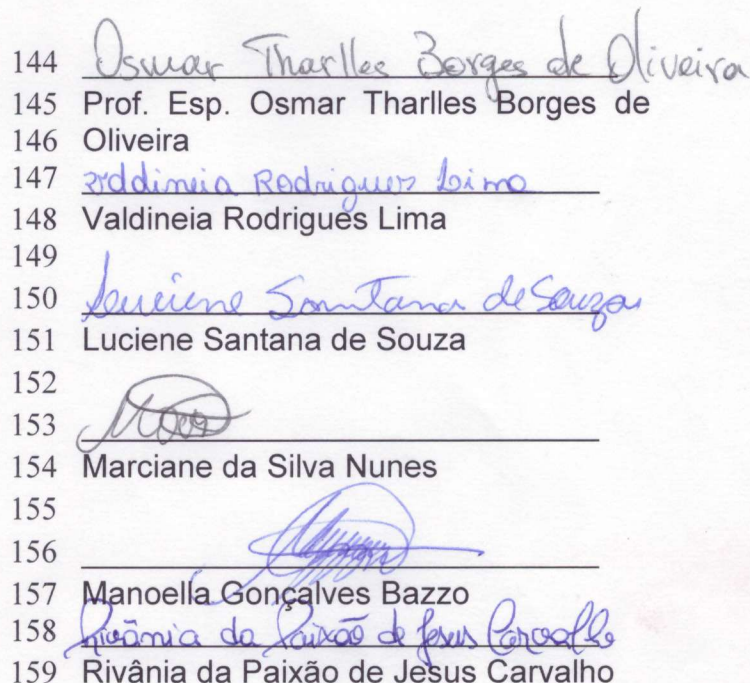 144 Osmar Tharlles Borges de Oliveira
145 Prof. Esp. Osmar Tharlles Borges de
146 Oliveira
147 Valdineia Rodrigues Lima
148 Valdineia Rodrigues Lima
149
150 Luciene Santana de Souza
151 Luciene Santana de Souza
152
153
154 Marciane da Silva Nunes
155
156
157 Manoella Gonçalves Bazzo
158 Rivânia da Paixão de Jesus Carvalho
159 Rivânia da Paixão de Jesus Carvalho